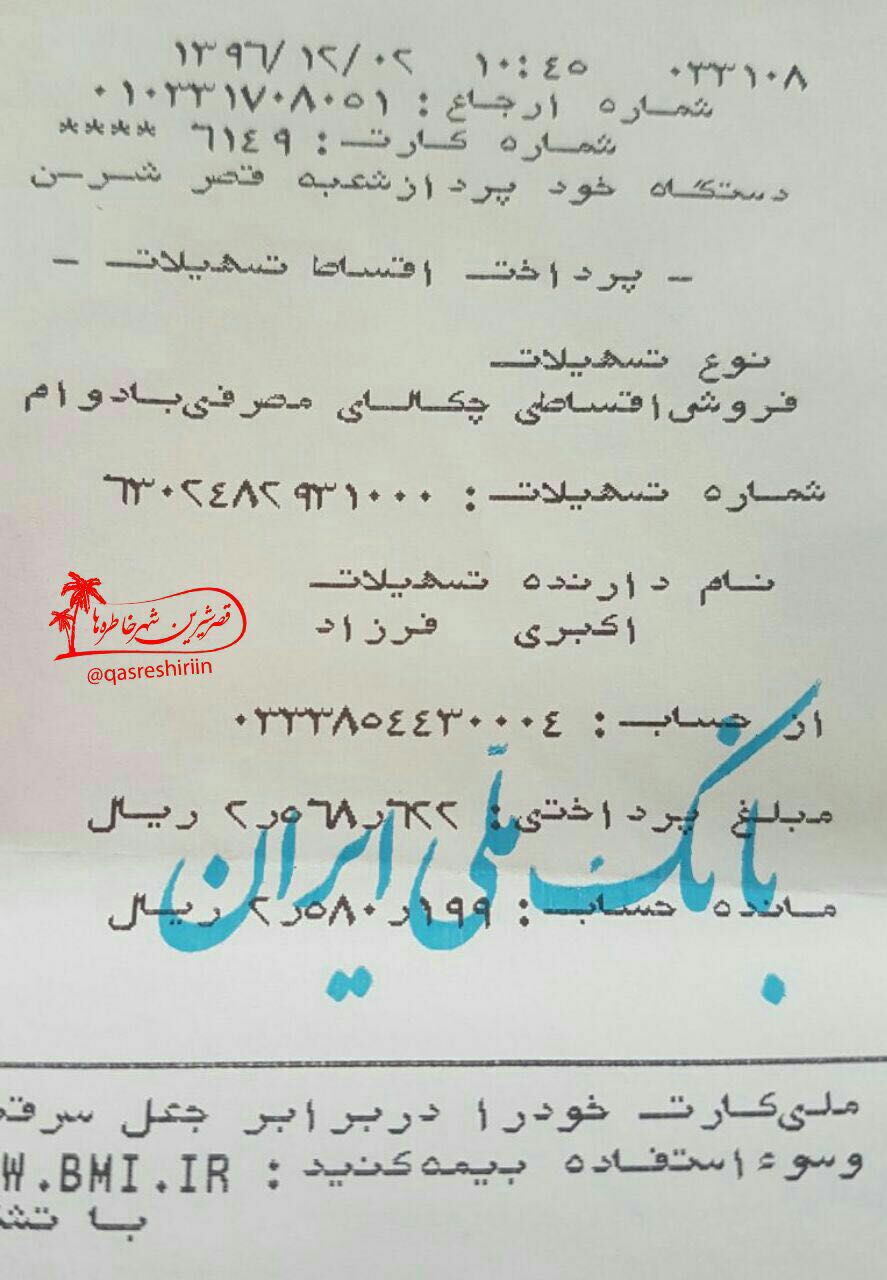 ۱۳۹۶/۱۲/۰۲ ۱۰:۴۵ ۰۳۳۱۰۸
شماره ارجاع : ۰۱۰۳۳۱۷۰۸۰۵۱
شماره کارت : ۶۱۴۹ ****
دستگاه خود پردازشعبه قصر شر-ن
- پرداخت اقساط تسهیلات -
نوع تسهیلات
فروش‌اقساطی چکالای مصرفی‌بادوام
شماره تسهیلات : ۶۳۰۲۴۸۲۹۳۱۰۰۰
نام دارنده تسهیلات
اکبری فرزاد
قصرشیرین شهر خاطره‌ها
@qasreshiriin
از حساب : ۰۳۳۳۸۵۴۴۳۰۰۰۴
مبلغ پرداختی : ۲٫۵۶۸٫۶۲۲ ریال
بانک ملّی ایران
مانده حساب : ۲٫۵۸۰٫۱۹۹ ریال
ملی‌کارت خودرا دربرابر جعل سرقت
وسوءاستفاده بیمه‌کنید : W.BMI.IR
با